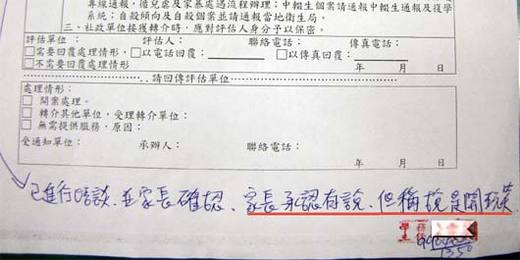 專線通報，循兒虐及家暴處遇流程辦理；中輟生個案請通報中輟生通報及復學
系統；自殺傾向及自殺個案並請通報當地衛生局。
三、社政單位接獲轉介時，應對評估人身分予以保密。
評估單位： 評估人： 聯絡電話： 傳真電話：
□需要回覆處理情形（□以電話回覆： □以傳真回覆：
□不需要回覆處理情形 年 月 日
..請回傳評估單位
處理情形：
□ 開案處理。
□ 轉介其他單位，受理轉介單位：
□ 無需提供服務，原因：
受通知單位： 承辦人： 聯絡電話：
年 月 日
已進行晤談、並家長確認、家長承認有說、但稱說是開玩笑
1350